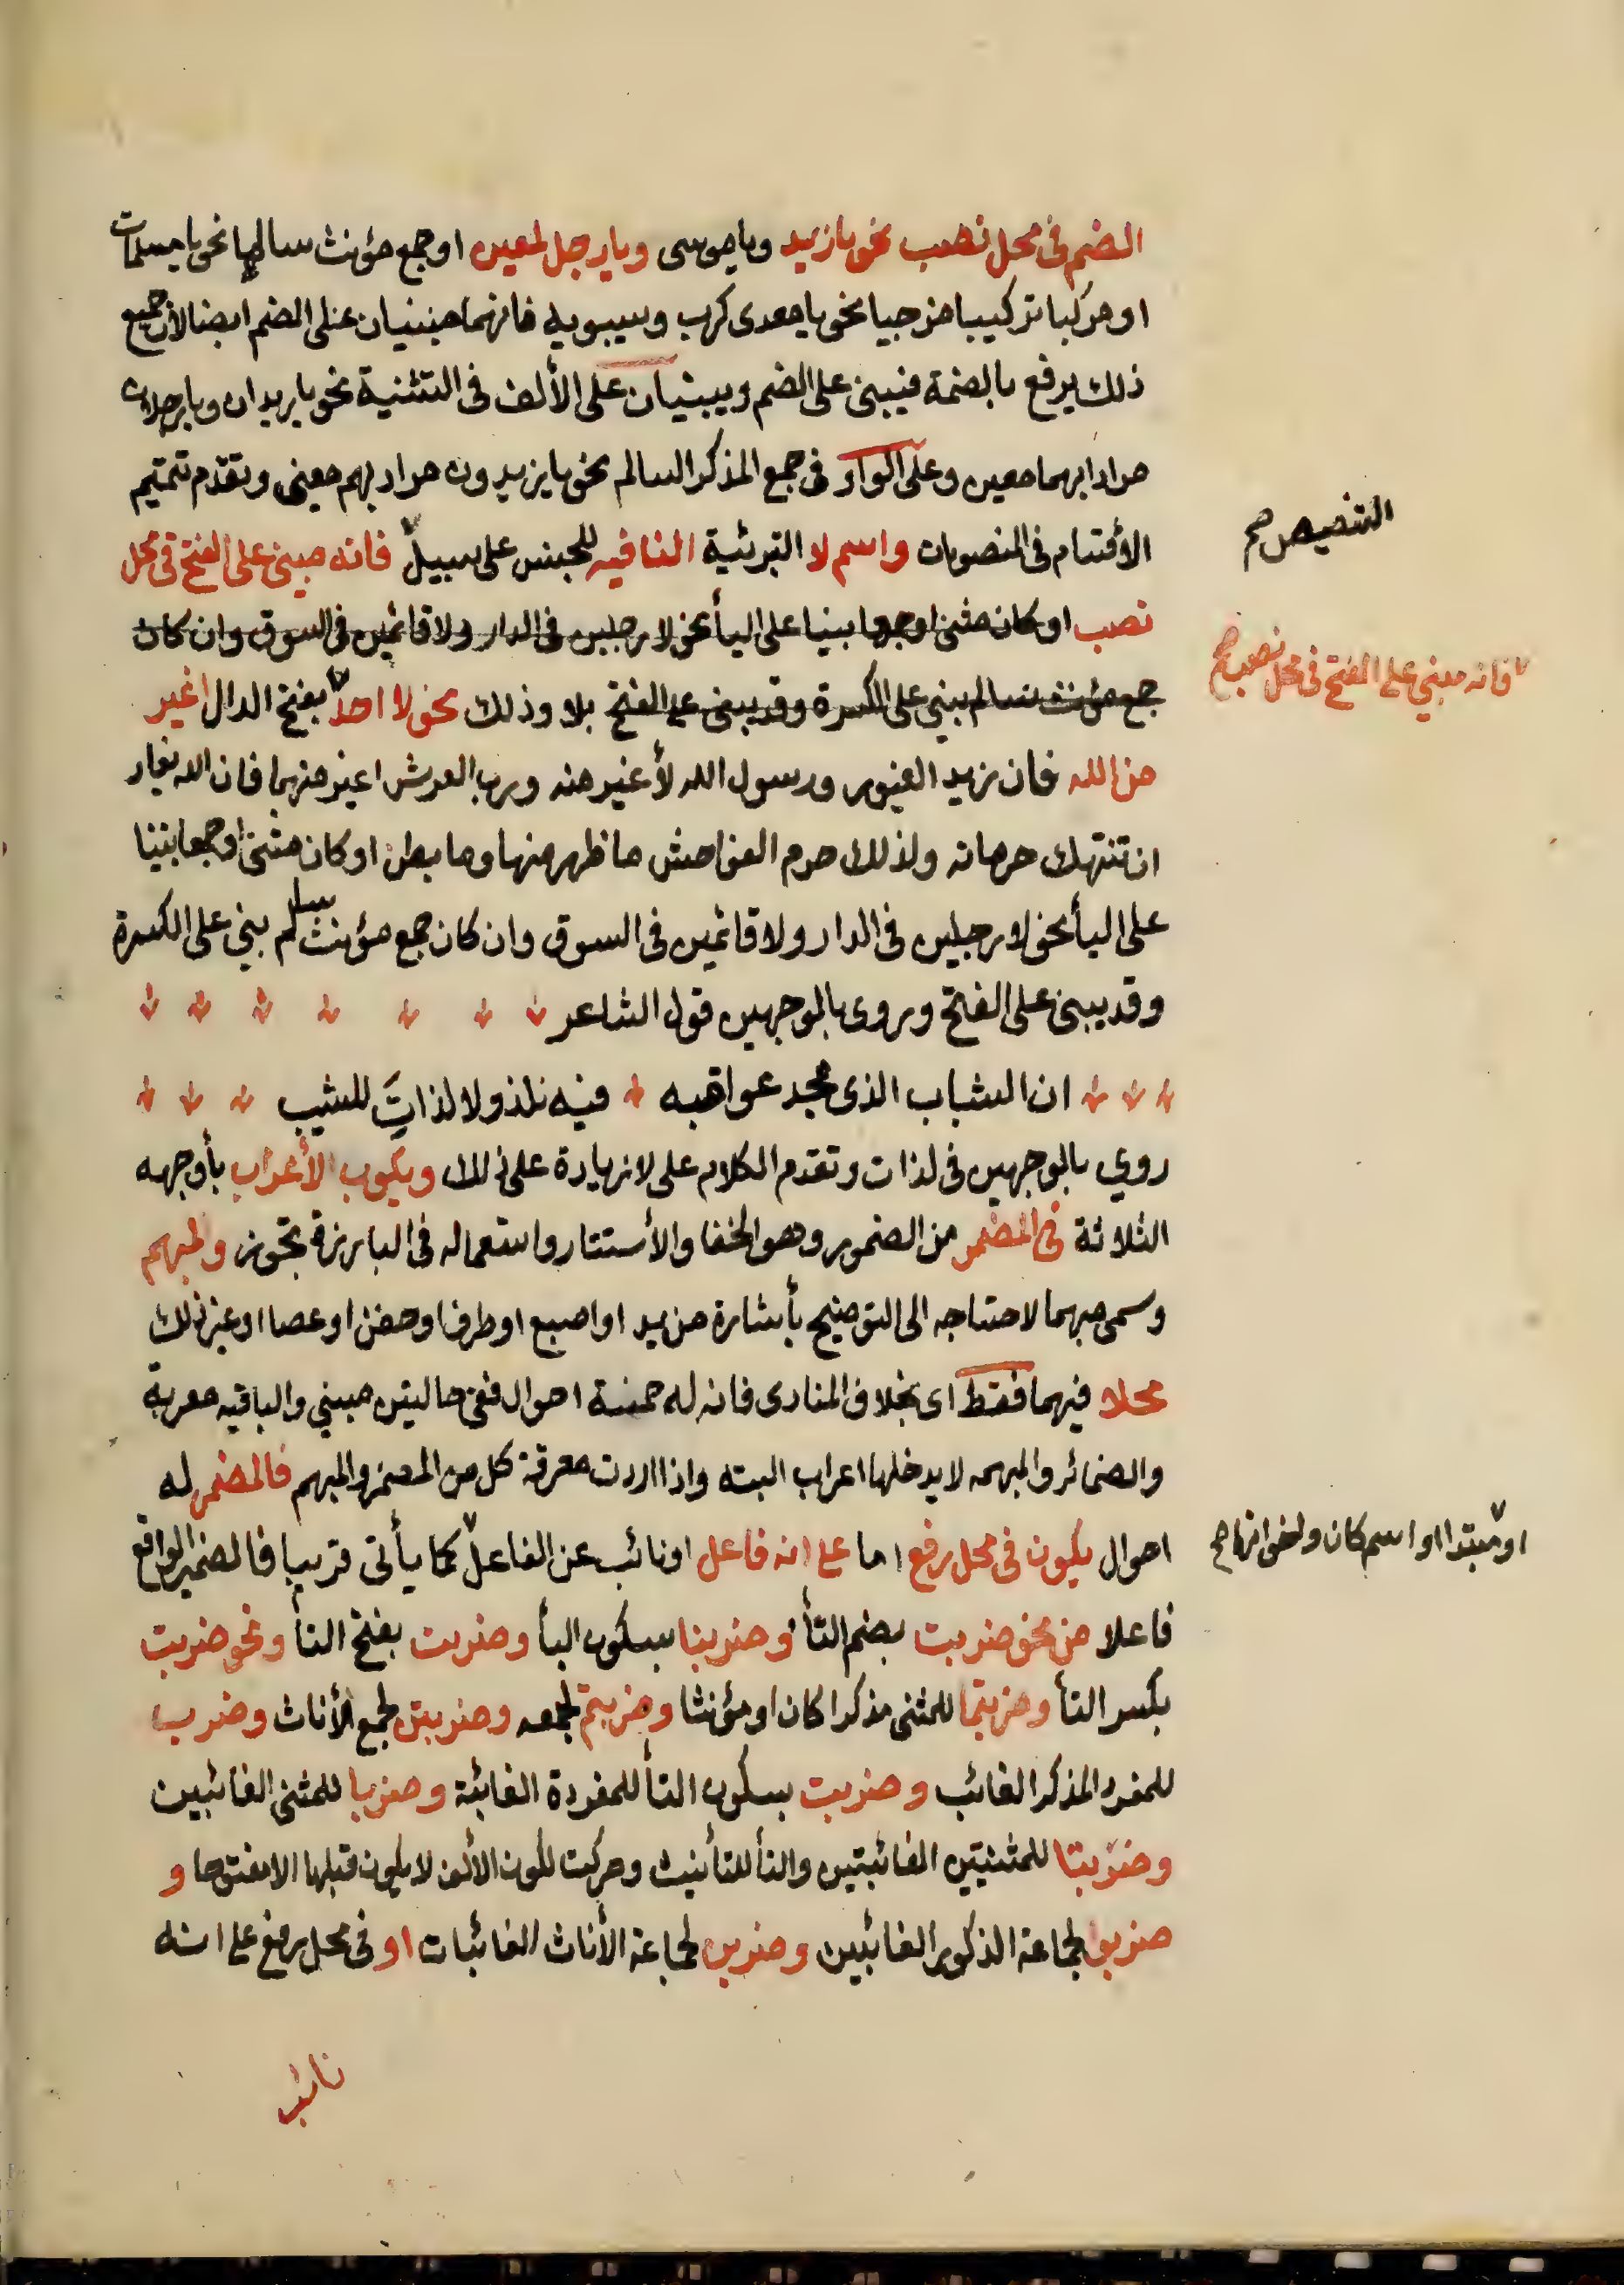 الضم فى محل نصب نحو يا زيد ويا موسى ويا رجل لمعين او جمع مؤنث سالما نحو يا مسلمات
او مركبا تركيبا مزجيا نحو يا معدى كرب وسيبويه فانهما مبنيان على الضم ايضا لأن جميع
ذلك يرفع بالضمة فيبنى على الضم ويبنيان على الألف فى التثنية نحو يا زيدان ويا رجلان
مرادا بهما معين وعلى الواو فى جمع المذكر السالم نحو يا زيدون مراد بهم معين وتقدم تتميم
الأقسام فى المنصوبات واسم لا التبرئية النافيه للجنس على سبيل فانه مبنى على الفتح فى محل
التنصيص صح
نصب او كان مثنى او جمعا بنيا على اليأ نحو لا رجلين فى الدار ولا قائمين فى السوق وان كان
فانه مبني على الفتح فى محل نصب صح
جمع مؤنث سالم بني على الكسرة وقد يبنى على الفتح بلا وذلك نحو لا احد بفتح الدال اغير
من الله فان زيد الغيور ورسول الله لأغير منه ورب العرش اغير منهما فان الله يغار
ان تنتهك حرماته ولذلك حرم الفواحش ما ظهر منها وما بطن او كان مثنى او جمعا بنيا
على اليأ نحو لا رجلين فى الدار ولا قائمين فى السوق وان كان جمع مؤنث سالم بني على الكسرة
وقد يبنى على الفتح وروى بالوجهين قول الشاعر
ان الشباب الذى مجد عواقبه فيه نلذ ولا لذات للشيب
روي بالوجهين فى لذات وتقدم الكلام على لا زيادة على ذلك ويكون الأعراب بأوجهه
الثلاثة فى المضمر من الضمور وهو الخفا والأستتار واستعماله فى البارزة تجوز والمبهم
وسمى مبهما لاحتاجه الى التوضيح بأشارة من يد او اصبع او طرف او حضن او عصا او غير ذلك
محلا فيهما فقط اى بخلاف المنادى فانه له خمسة احوال ففى حالتين مبني والباقيه معربة
والضمائر والمبهمه لا يدخلها اعراب البته واذا اردت معرفة كل من المضمر والمبهم فالمضمر له
احوال يكون فى محل رفع اما على انه فاعل او نائب عن الفاعل كما يأتى قريبا فالضمير الواقع
او مبتدا او اسم كان واخواتها صح
فاعلا من نحو ضربت بضم التأ وضربنا بسكون البأ وضربت بفتح التأ ونحو ضربت
بكسر التأ وضربتما للمثنى مذكرا كان او مؤنثا وضربتم لجمعه وضربتن لجمع الأناث وضرب
للمفرد المذكر الغائب وضربت بسكون التأ للمفردة الغائبة وضربا للمثنى الغائبين
وضربتا للمثنيتين الغائبتين والتأ للتأنيث وحركت لكون الألف لا يكون قبلها الا مفتوحا و
ضربوا لجماعة الذكور الغائبين وضربن لجماعة الأناث الغائبات او فى محل رفع على انه
نائب